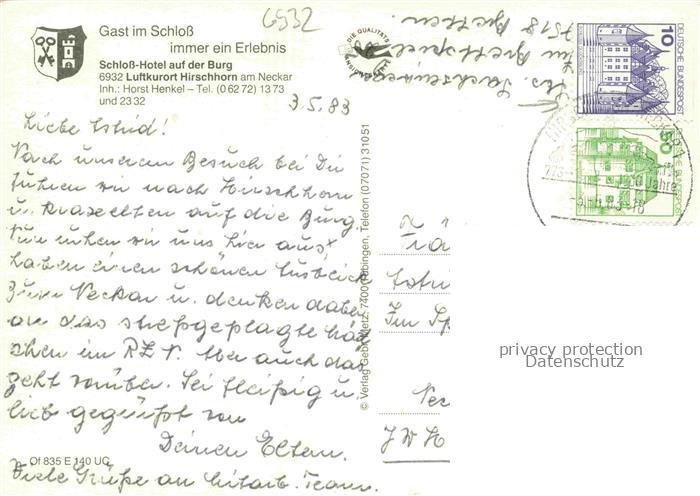 6932
Gast im Schloß
immer ein Erlebnis
Schloß-Hotel auf der Burg
6932 Luftkurort Hirschhorn am Neckar
Inh.: Horst Henkel – Tel. (0 62 72) 13 73
und 23 32
3.5.83
Liebe Astrid!
Nach unserem Besuch bei Dir
fuhren wir nach Hirschhorn
u. auf die Burg
Nun ruhen wir uns hier aus,
haben einen schönen Ausblick
zum Neckar u. denken dabei
an das streßgeplagte
chen im RZ. Aber auch das
geht vorüber. Sei fleißig u.
lieb gegrüßt von
Deinen Eltern.
Viele Grüße an Mitarb. Team.
Of 835 E 140 UG
© Verlag Gebr. Metz, 7400 Tübingen, Telefon (07071) 31051
DIE QUALITÄTS
7518 Bretten
10
DEUTSCHE BUNDESPOST
50
DEUTSCHE BUNDESPOST
Jahre
Im
Nec
privacy protection
Datenschutz